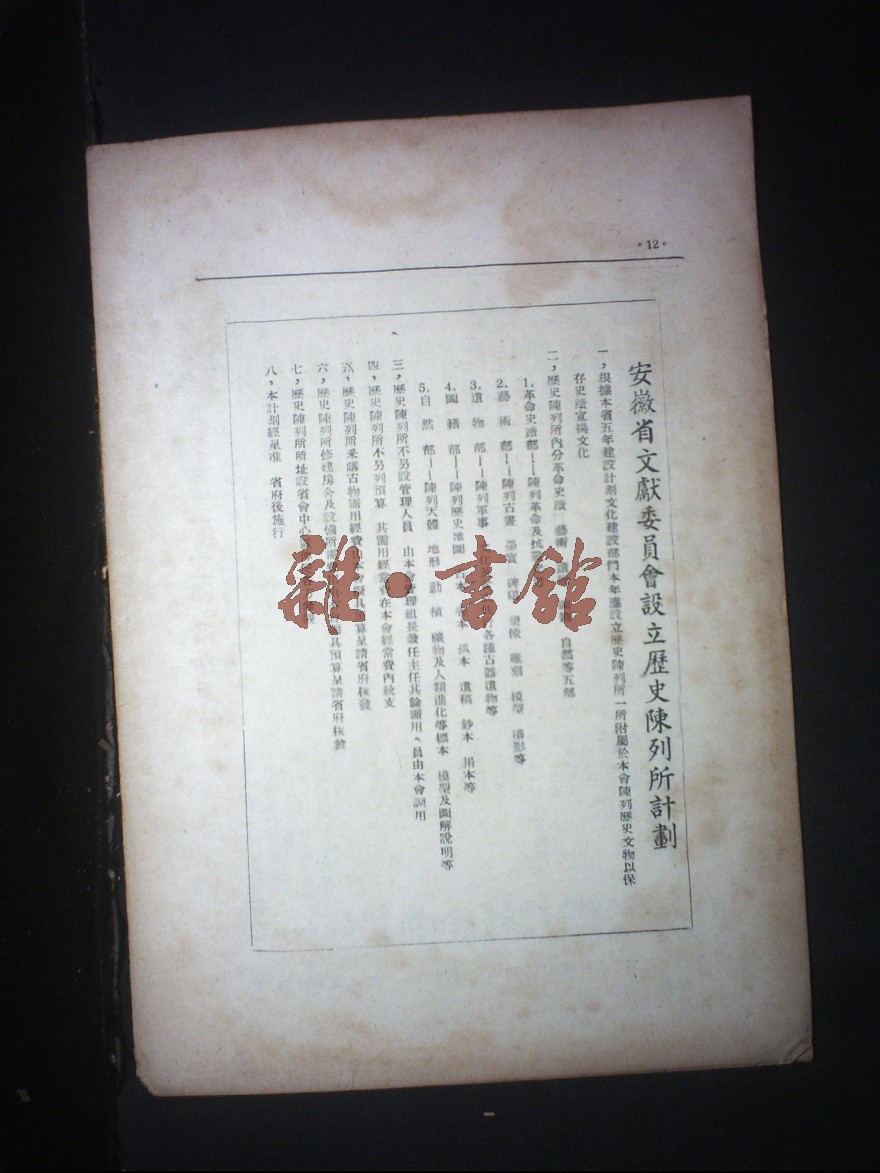 12
安徽省文獻委員會設立歷史陳列所計劃
一，根據本省五年建設計劃文化建設部門本年應設立歷史陳列所一所附屬於本會陳列歷史文物以保
存史蹟宣揚文化
二，歷史陳列所內分革命史蹟 藝術 自然等五部
1.革命史蹟部——陳列革命及抗
2.藝術部——陳列古畫 墨寶 碑碣 塑像 雕刻 模型 攝影等
3.遺物部——陳列軍事 各種古器遺物等
4.圖籍部——陳列歷史地圖 孤本 遺稿 鈔本 揭本等
5.自然部——陳列天體 地形 動 植 礦物及人類進化等標本 模型及圖解說明等
三，歷史陳列所不另設管理人員 由本會管理組長兼任主任其餘需用人員由本會調用
四，歷史陳列所不另列預算 其需用經常費在本會經常費內統支
五，歷史陳列所釆購古物需用經費由本會 具預算呈請省府核發
六，歷史陳列所修建房舍及設備所需 具預算呈請省府核發
七，歷史陳列所所址設省會中心
八，本計劃經呈准 省府後施行
雜·書館